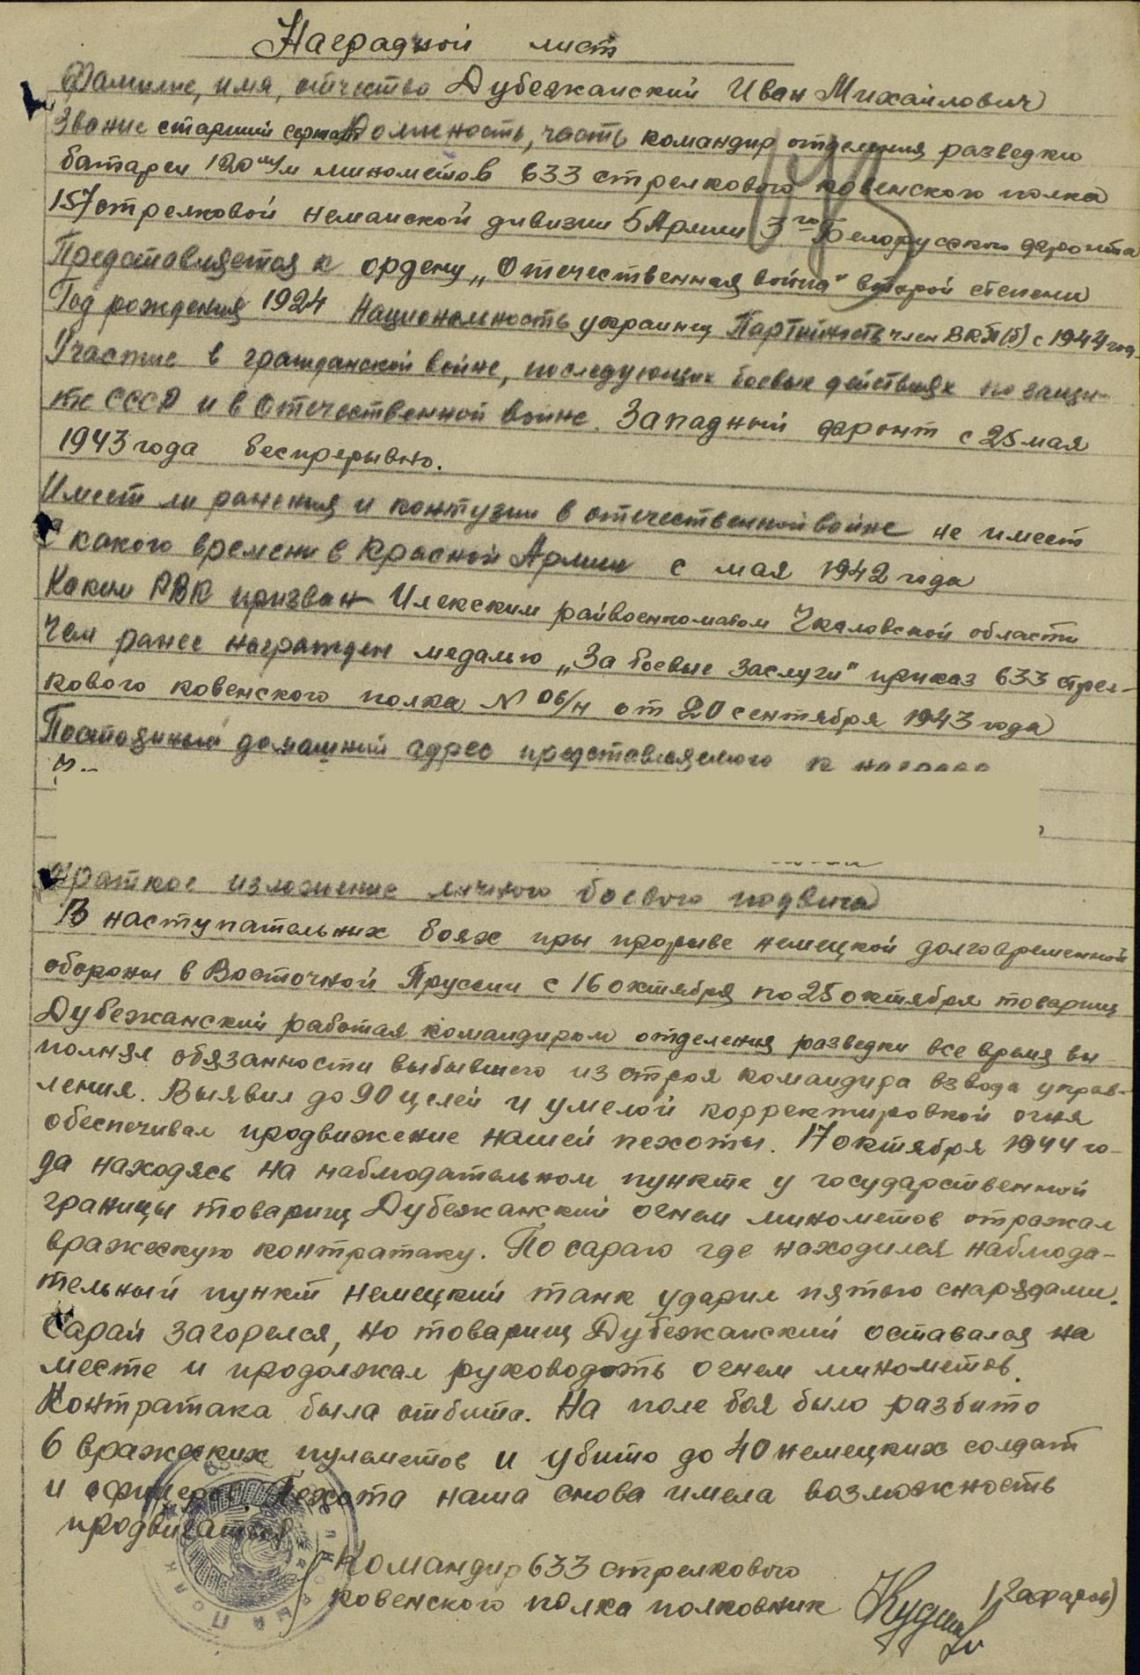 Наградной лист
Фамилие, имя, отчество Дубежанский Иван Михайлович
Звание старший сержант Должность, часть командир отделения разведки
батареи 120 м/м минометов 633 стрелкового ковенского полка
157 стрелковой неманской дивизии 5 Армии 3го Белорусского фронта
Представляется к ордену „Отечественная война" второй степени
Год рождения 1924 Национальность украинец Партийность член ВКП(б) с 1944 год.
Участие в гражданской войне, последующих боевых действиях по защи-
те СССР и в Отечественной войне. Западный фронт с 25 мая
1943 года беспрерывно.
Имеет ли ранения и контузии в отечественной войне не имеет
С какого времени в Красной Армии с мая 1942 года
Каким РВК призван Илекским райвоенкоматом Чкаловской области
Чем ранее награжден медалью „За боевые заслуги" приказ 633 стрел-
кового ковенского полка № 06/н от 20 сентября 1943 года
Постоянный домашний адрес представляемого к награде
Краткое изложение личного боевого подвига
В наступательных боях при прорыве немецкой долговременной
обороны в Восточной Пруссии с 16 октября по 25 октября товарищ
Дубежанский работая командиром отделения разведки все время вы-
полнял обязанности выбывшего из строя командира взвода управ-
ления. Выявил до 90 целей и умелой корректировкой огня
обеспечивал продвижение нашей пехоты. 17 октября 1944 го-
да находясь на наблюдательном пункте у государственной
границы товарищ Дубежанский огнем минометов отражал
вражескую контратаку. По сараю где находился наблюда-
тельный пункт немецкий танк ударил пятью снарядами.
Сарай загорелся, но товарищ Дубежанский оставался на
месте и продолжал руководить огнем минометов.
Контратака была отбита. На поле боя было разбито
6 вражеских пулеметов и убито до 40 немецких солдат
и офицеров. Пехота наша снова имела возможность
продвигаться
Командир 633 стрелкового
ковенского полка полковник